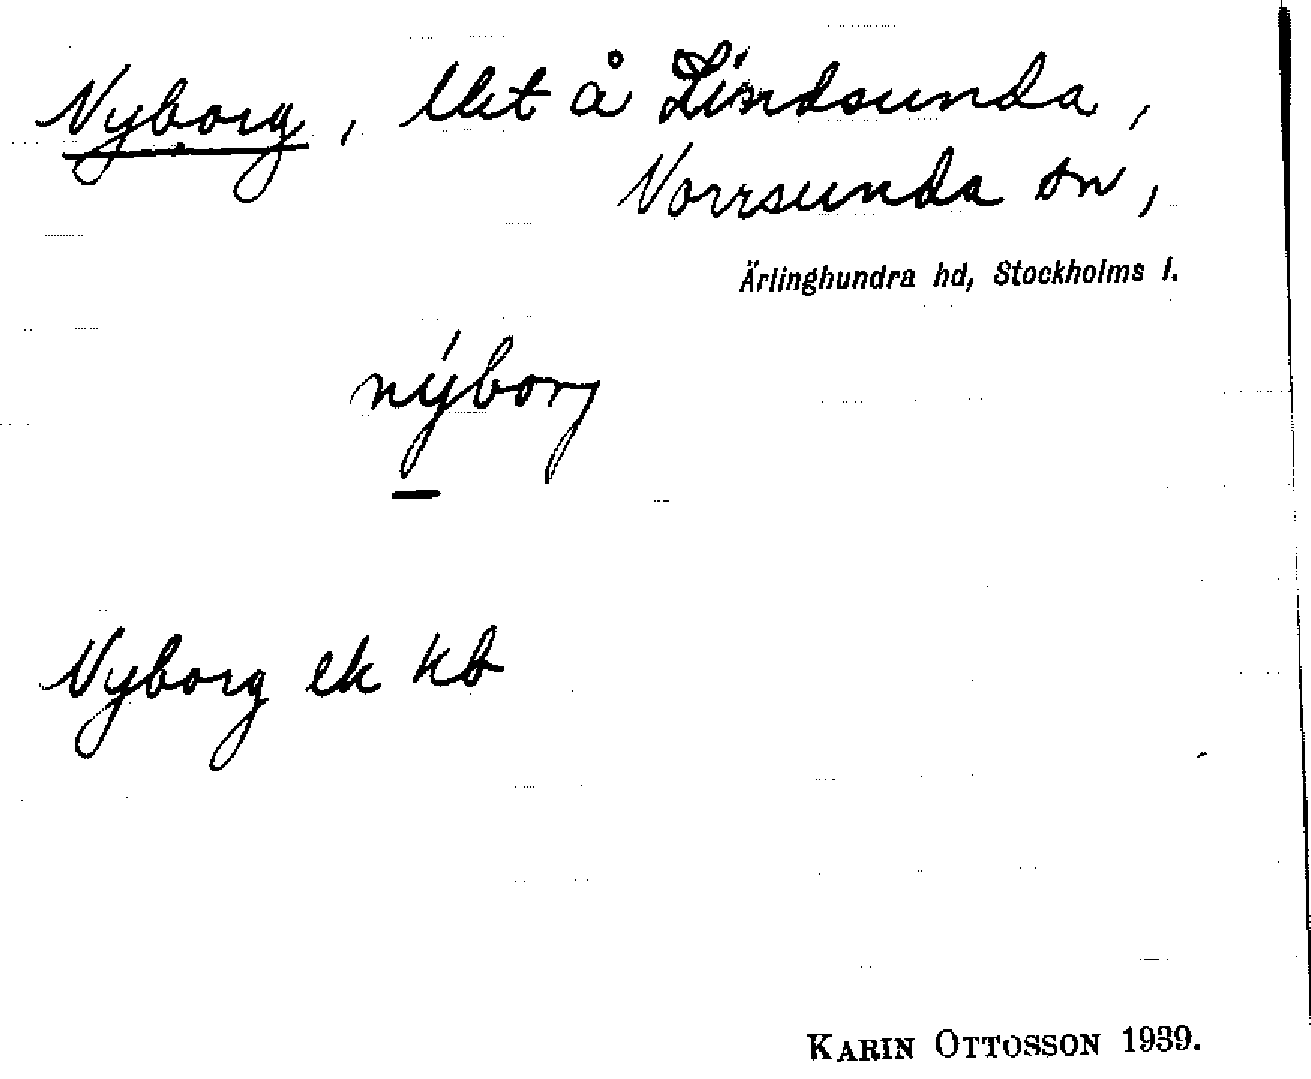 Nyborg, lht å Lindsunda,
Norrsunda sn,
Ärlinghundra hd, Stockholms l.
nýborj
Nyborg ek kb
KARIN OTTOSSON 1939.